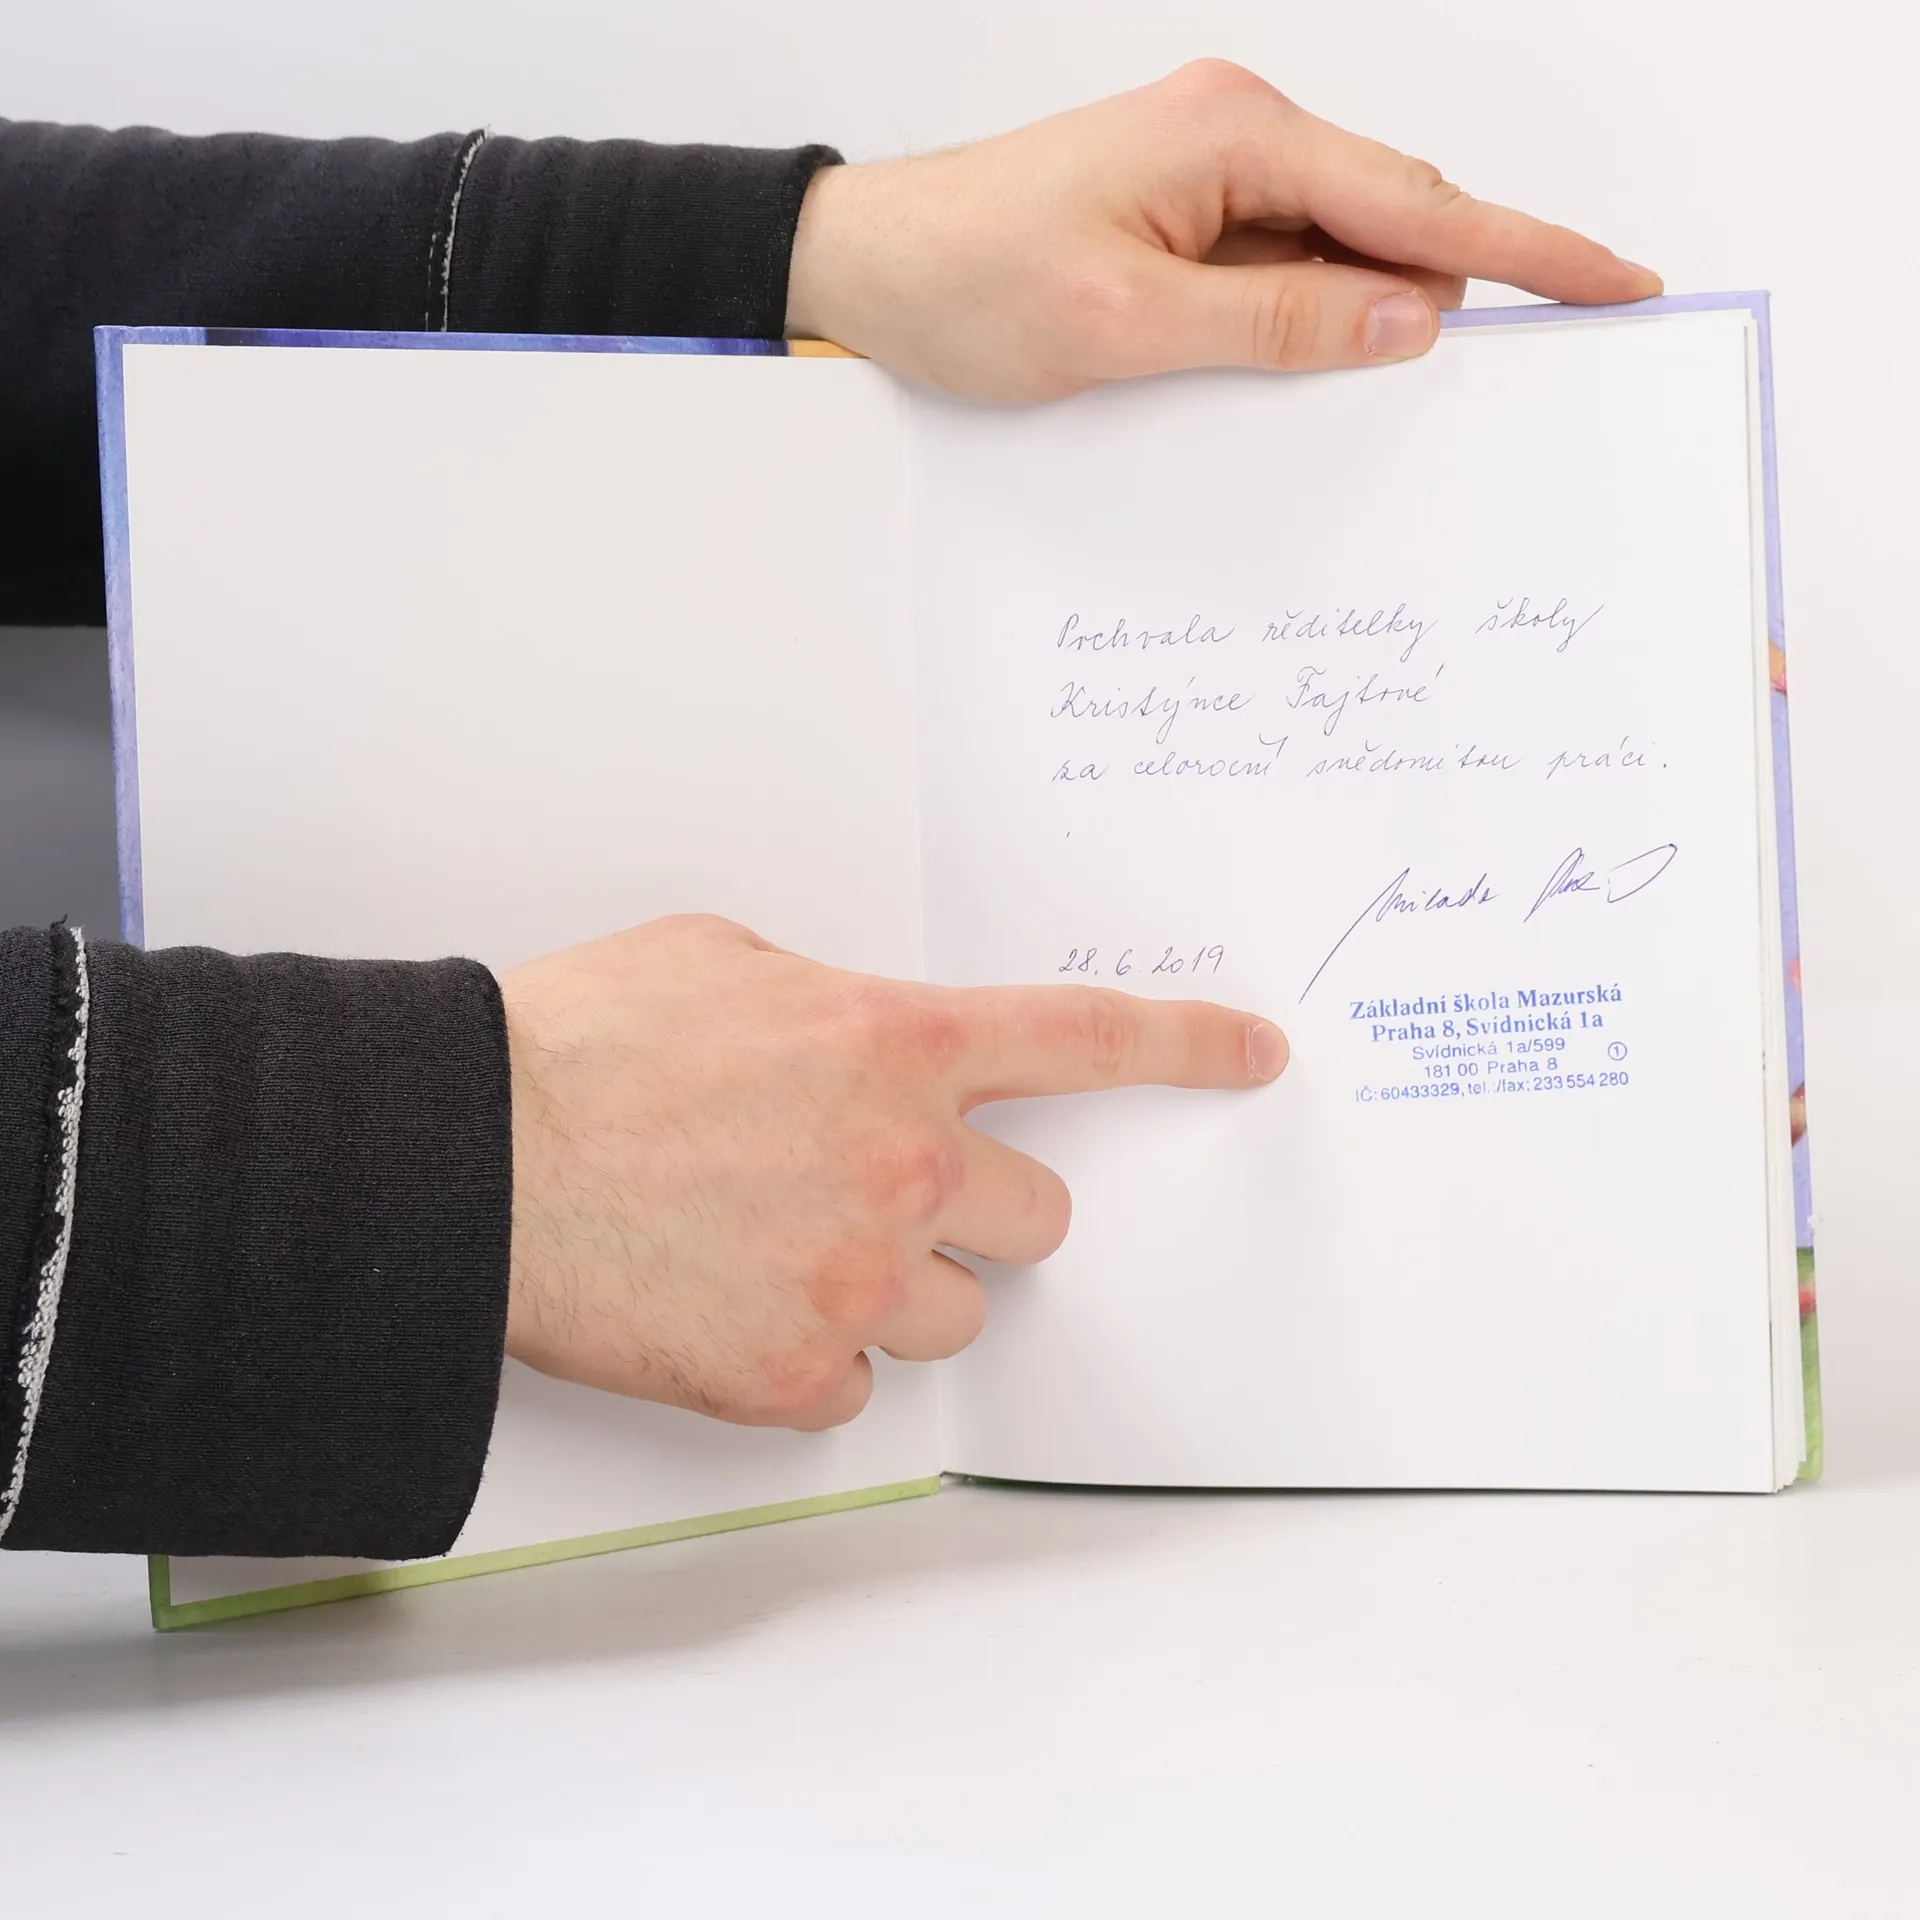 Pochvala ředitelky školy
Kristýnce Fajtové
za celoroční svědomitou práci.
Milada
28. 6. 2019
Základní škola Mazurská
Praha 8, Svídnická 1a
Svídnická 1a/599
1
181 00 Praha 8
IČ: 60433329, tel.:/fax: 233 554 280